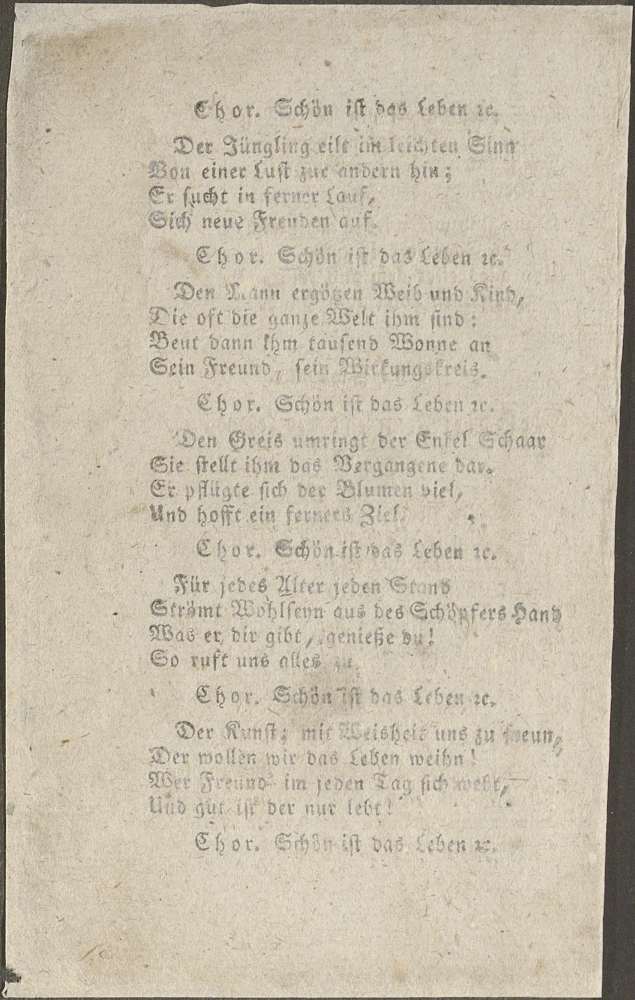 Chor. Schön ist das Leben ꝛc.
Der Jüngling eilt im leichten Sinn
Von einer Lust zur andern hin;
Er sucht in ferner Lauf,
Sich neue Freuden auf.
Chor. Schön ist das Leben ꝛc.
Den Mann ergötzen Weib und Kind,
Die oft die ganze Welt ihm sind:
Beut dann ihm tausend Wonne an
Sein Freund, sein Wirkungskreis.
Chor. Schön ist das Leben ꝛc.
Den Greis umringt der Enkel Schaar
Sie stellt ihm das Vergangene dar.
Er pflügte sich der Blumen viel,
Und hofft ein ferners Ziel.
Chor. Schön ist das Leben ꝛc.
Für jedes Alter jeden Stand
Strömt Wohlseyn aus des Schöpfers Hand
Was er dir gibt, genieße du!
So ruft uns alles zu
Chor. Schön ist das Leben ꝛc.
Der Kunst; mit Weisheit uns zu freun,
Der wollen wir das Leben weihn!
Wer Freund im jeden Tag sich webt,
Und gut ist der nur lebt!
Chor. Schön ist das Leben ꝛc.